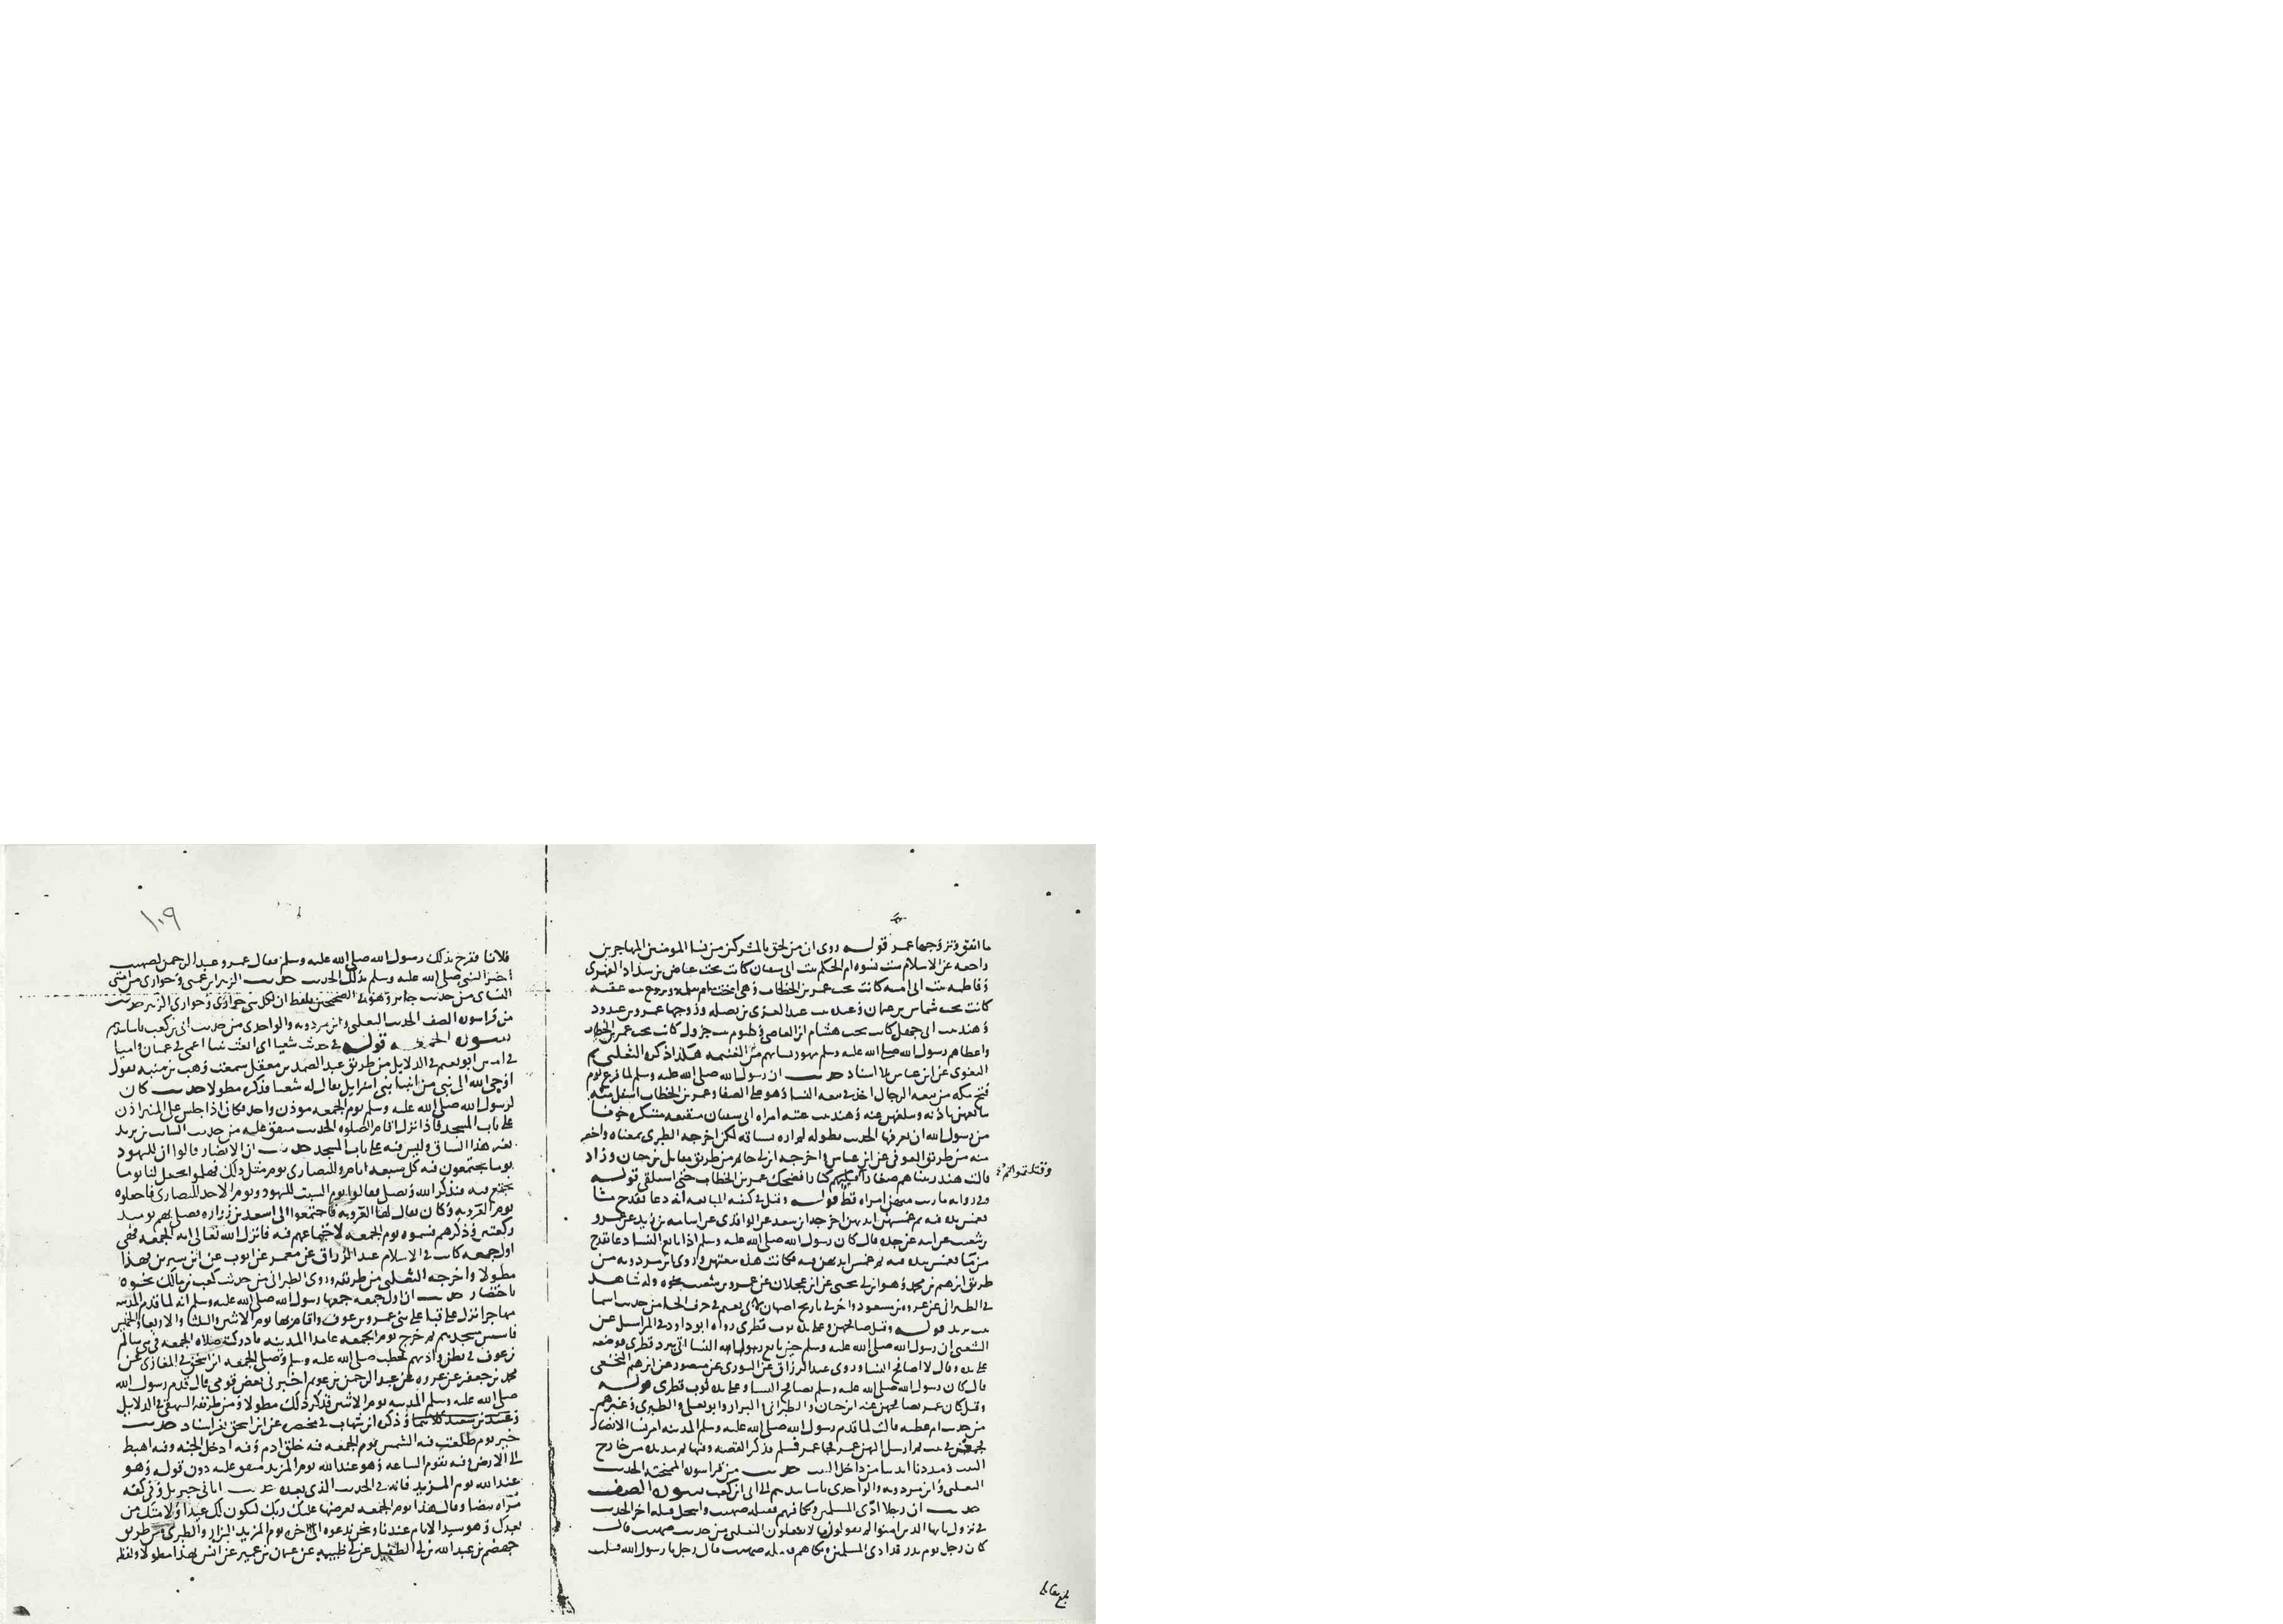 ما انفق وتزوجها عمر قوله روى ان من لحق بالمشركين من نسا المومنين المهاجرين
راجعه عن الاسلام ست نسوه ام الحكم بنت ابى سفيان كانت تحت عياض بن شداد الفهرى
وفاطمه بنت ابى اميه كانت تحت عمر بن الخطاب وهى اخت ام سلمه وبروع بنت عقبه
كانت تحت شماس بن عثمان وعبده بنت عبد العزى بن نضله وزوجها عمرو بن عبدود
وهند بنت ابى جهل كانت تحت هشام بن العاصى وكلثوم بنت جرول كانت تحت عمر بن الخطاب
واعطاهم رسول الله صلى الله عليه وسلم مهور نسايهم من الغنيمه هكذا ذكره الثعلبى ثم
البغوى عن ابن عباس بلا اسناد حديث ان رسول الله صلى الله عليه وسلم لما فرغ يوم
فتح مكه من بيعه الرجال اخذ فى بيعه النسا وهو على الصفا وعمر بن الخطاب اسفل منه
يبايعهن باذنه ويبلغهن عنه وهند بنت عتبه امراه ابى سفيان متقنعه متنكره خوفا
من رسول الله ان يعرفها الحديث بطوله لم اره بسياقه لكن اخرجه الطبرى بمعناه واخصر
منه من طريق العوفى عن ابن عباس واخرجه ابن ابى حاتم من طريق مقاتل بن حيان وزاد
قالت هند ربيناهم صغارا كبارا فضحك عمر بن الخطاب حتى استلقى قوله
وقتلتموهم
وفى روايه ما زنت منهن امراه قط قوله وقيل فى كيفيه المبايعه انه دعا بقدح من ما
فغمس يده فيه ثم غمسن ايديهن اخرجه ابن سعد عن الواقدى عن اسامه بن زيد عن عمرو
بن شعيب عن ابيه عن جده قال كان رسول الله صلى الله عليه وسلم اذا بايع النسا دعا بقدح
من ما فغمس يده فيه ثم غمس ايديهن فيه فكانت هذه بيعتهن وروى ابن مردويه من
طريق ابرهيم بن محمد وهو ابن ابى يحيى عن ابن عجلان عن عمرو بن شعيب نحوه وله شاهد
فى الطبرانى عن عروه بن مسعود واخر فى تاريخ اصبهان لابى نعيم فى حرف الحا من حديث اسما
بنت يزيد قوله وقيل صافحهن وعلى يده ثوب قطرى رواه ابو داود فى المراسيل عن
الشعبى ان رسول الله صلى الله عليه وسلم حين بايع النسا اتى ببرد قطرى فوضعه
على يده وقال لا اصافح النسا وروى عبد الرزاق عن الثورى عن منصور عن ابرهيم النخعى
قال كان رسول الله صلى الله عليه وسلم يصافح النسا وعلى يده ثوب قطرى قوله
وقيل كان عمر يصافحهن عنه ابن حبان والطبرانى والبزار وابو يعلى والطبرى وغيرهم
من حديث ام عطيه قالت لما قدم رسول الله صلى الله عليه وسلم المدينه امر نسا الانصار
فجمعهن فى بيت ثم ارسل اليهن عمر فجا عمر فسلم فذكر القصه وفيها ثم مد يده من خارج
البيت ومددنا ايدينا من داخل البيت حديث من قرا سوره الممتحنه الحديث
الثعلبى وابن مردويه والواحدى باسانيدهم الى ابى بن كعب سوره الصف
حديث ان رجلا اذى المسلمين ونكا فيهم فقتله صهيب وانتحل قتله اخر الحديث
فى نزول يا ايها الذين امنوا لم تقولون ما لا تفعلون الثعلبى من حديث صهيب قال
كان رجل يوم بدر قد اذى المسلمين ونكاهم فقتله صهيب فقال رجل يا رسول الله قتلت
بلغ مقابله
١٠٩
فلانا ففرح بذلك رسول الله صلى الله عليه وسلم فقال عمر وعبد الرحمن لصهيب
اخبر النبى صلى الله عليه وسلم بذلك الحديث حديث الزبير ابن عمتى وحوارى من امتى
النساى من حديث جابر وهو فى الصحيحين بلفظ ان لكل نبى حوارى وحوارى الزبير حديث
من قرا سوره الصف الحديث الثعلبى وابن مردويه والواحدى من حديث ابى بن كعب باسانيدهم
سوره الجمعه قوله فى حديث شعيا انى ابعث نبيا اعمى فى عميان واميا
فى اميين ابو نعيم فى الدلايل من طريق عبد الصمد بن معقل سمعت وهب بن منبه يقول
اوحى الله الى نبى من انبيا بنى اسرايل يقال له شعيا فذكره مطولا حديث كان
لرسول الله صلى الله عليه وسلم يوم الجمعه موذن واحد فكان اذا جلس على المنبر اذن
على باب المسجد فاذا نزل اقام الصلوه الحديث متفق عليه من حديث السايب بن يزيد
بغير هذا السياق وليس فيه على باب المسجد حديث ان الانصار قالوا ان لليهود
يوما يجتمعون فيه كل سبعه ايام وللنصارى يوم مثل ذلك فهلموا نجعل لنا يوما
نجتمع فيه فنذكر الله ونصلى فقالوا يوم السبت لليهود ويوم الاحد للنصارى فاجعلوه
يوم العروبه وكان يقال لها العروبه فاجتمعوا الى اسعد بن زراره فصلى بهم يوميد
ركعتين وذكرهم فسموه يوم الجمعه لاجتماعهم فيه فانزل الله تعالى ايه الجمعه فهى
اول جمعه كانت فى الاسلام عبد الرزاق عن معمر عن ايوب عن ابن سيرين بهذا
مطولا واخرجه الثعلبى من طريقه وروى الطبرانى من حديث كعب بن مالك نحوه
باختصار حديث ان اول جمعه جمعها رسول الله صلى الله عليه وسلم انه لما قدم المدينه
مهاجرا نزل على قبا على بنى عمرو بن عوف واقام بها يوم الاثنين والثلثا والاربعا والخميس
فاسس مسجدهم ثم خرج يوم الجمعه عامدا المدينه فادركته صلاه الجمعه فى بنى سالم
بن عوف فى بطن واديهم فخطب صلى الله عليه وسلم وصلى الجمعه ابن اسحق فى المغازى عن
محمد بن جعفر عن عروه عن عبد الرحمن بن عويم اخبرنى بعض قومى قال قدم رسول الله
صلى الله عليه وسلم المدينه يوم الاثنين فذكر ذلك مطولا ومن طريقه البيهقى فى الدلايل
وذكره ابن شهاب فى مختصره عن ابن اسحق بغير اسناد حديث
خير يوم طلعت فيه الشمس يوم الجمعه فيه خلق ادم وفيه ادخل الجنه وفيه اهبط
الى الارض وفيه تقوم الساعه وهو عند الله يوم المزيد متفق عليه دون قوله وهو
عند الله يوم المزيد فانه فى الحديث الذى بعده حديث اتانى جبريل وفى كفه
مراه بيضا وقال هذا يوم الجمعه يعرضها عليك ربك لتكون لك عيدا ولامتك من
بعدك وهو سيد الايام عندنا ونحن ندعوه الى الاخره يوم المزيد البزار والطبرى من طريق
جهضم بن عبد الله بن ابى الطفيل عن ابى طيبه عن عثمان بن عمير عن انس بهذا مطولا ولفظ